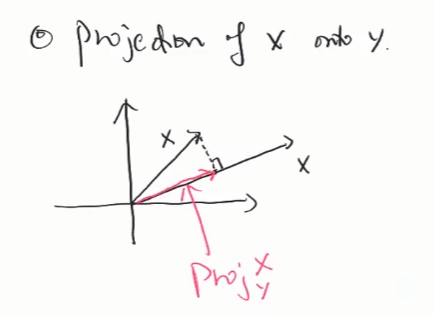 ⊙ Projection of x onto y.
x
x
Proj x y